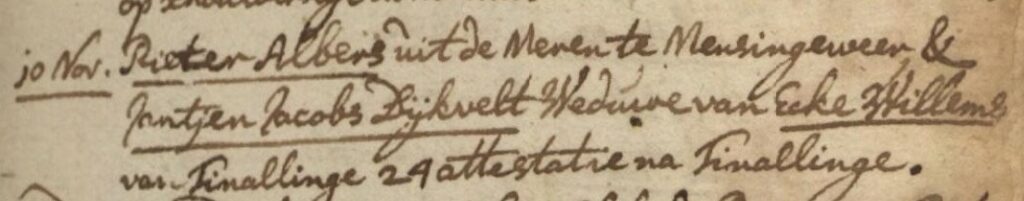 10 Nov. Pieter Albers uit de Meren te Mensingeweer &
Jantjen Jacobs Dijkvelt Weduwe van Ecke Willems
van Tinallinge 24 attestatie na Tinallinge.